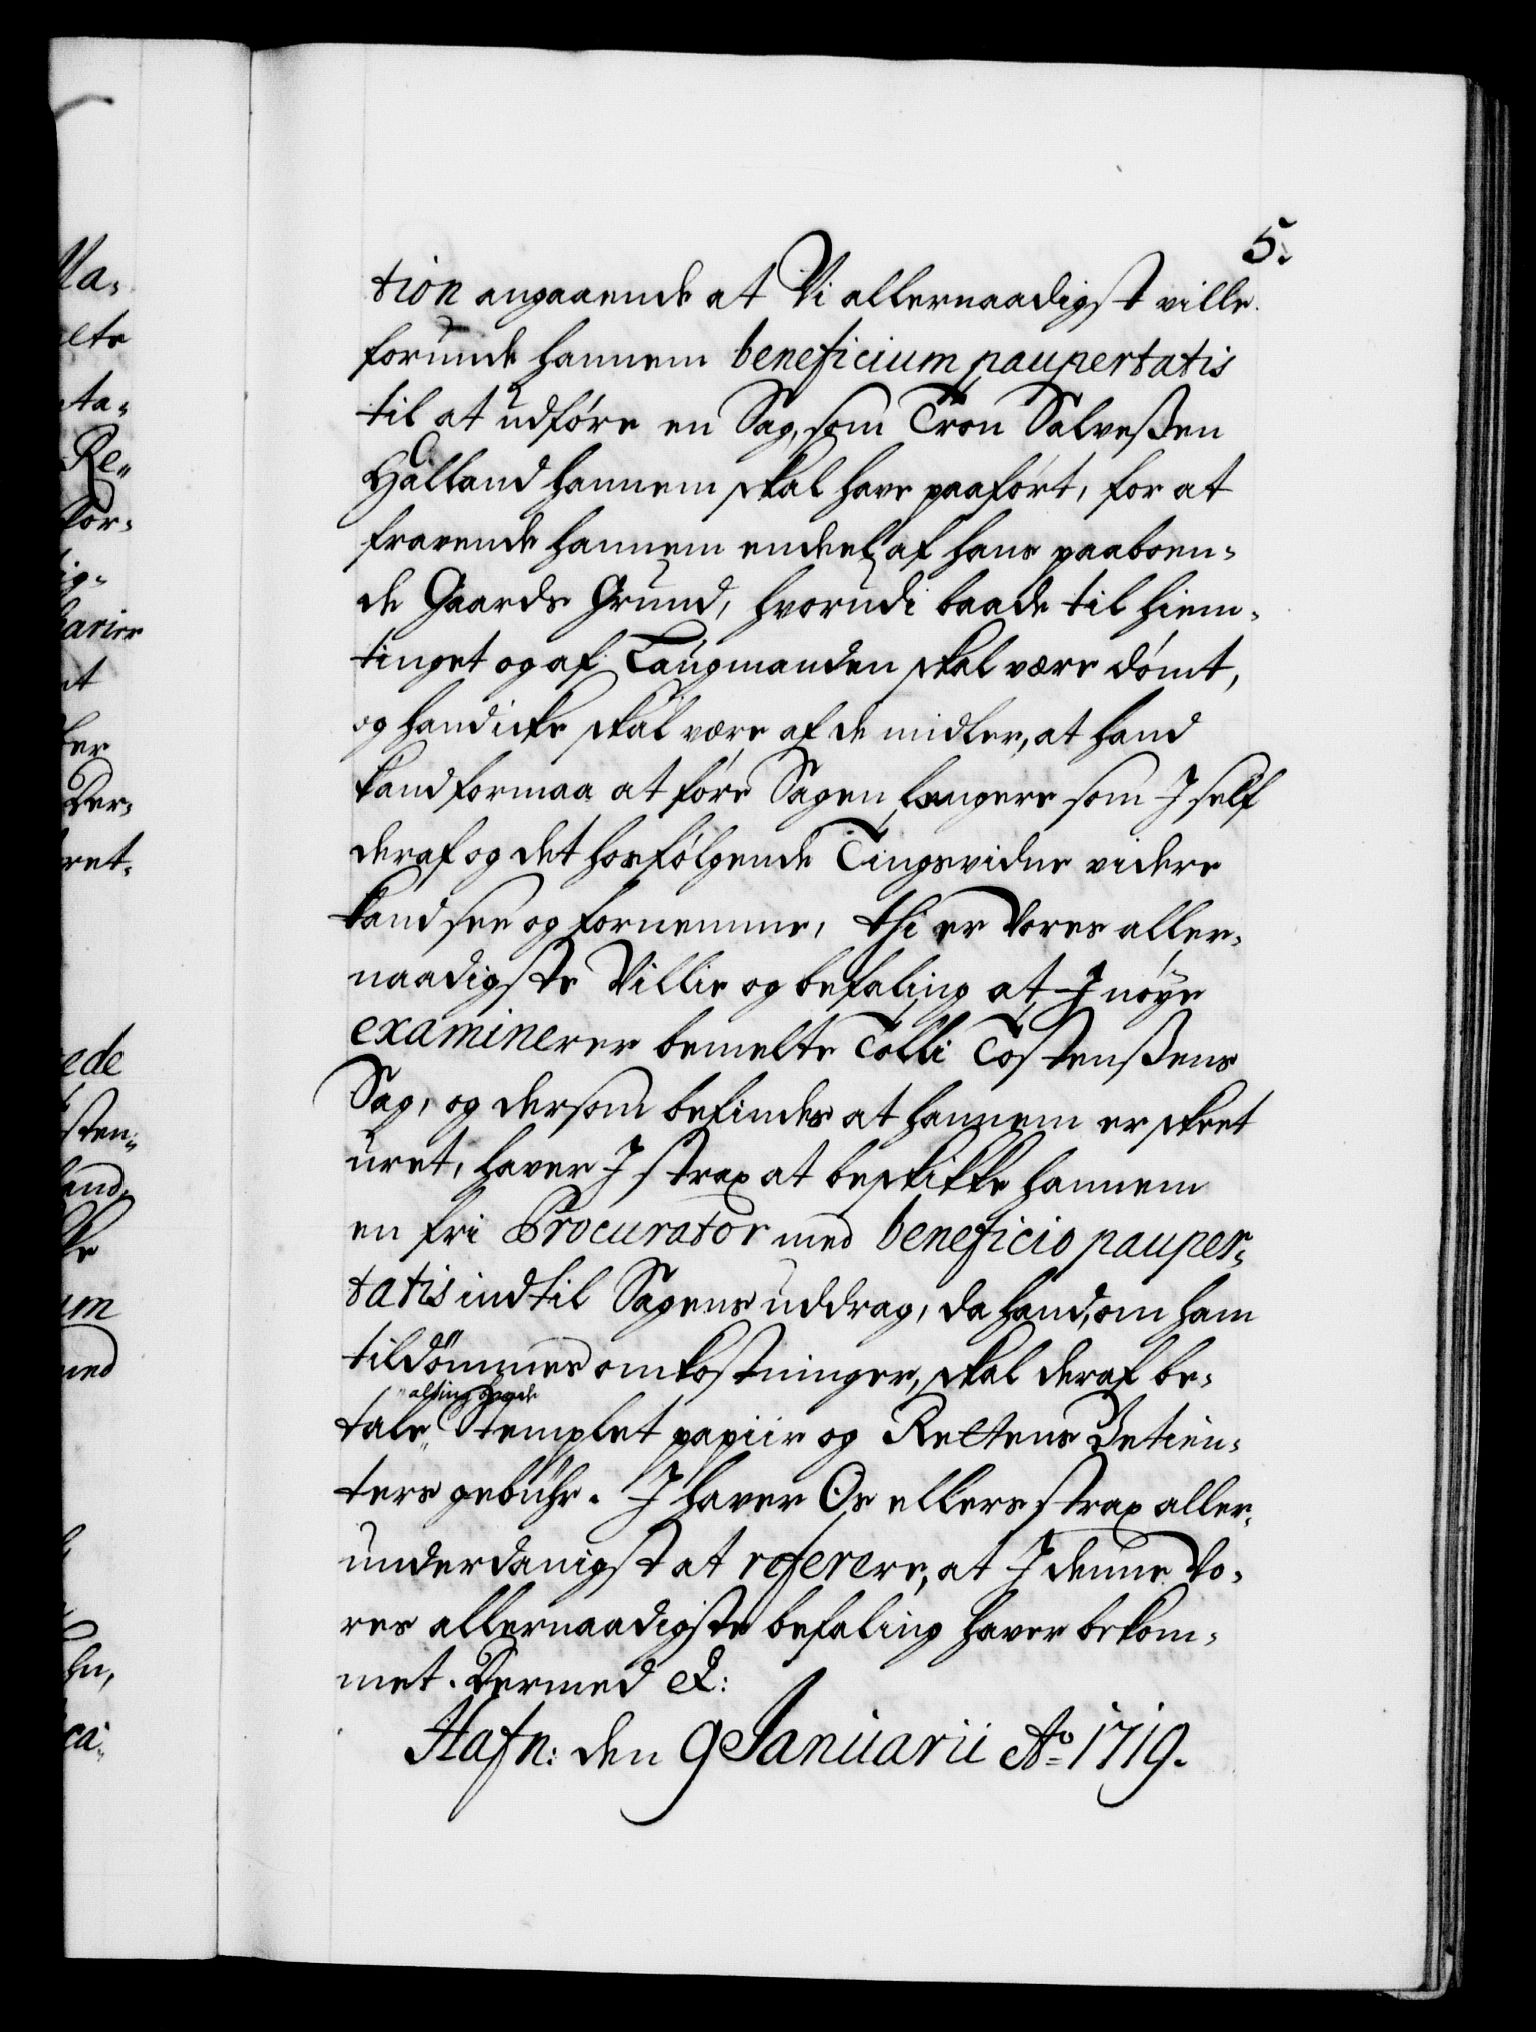 5.
tion angaaende at Vi allernaadigst ville
forunde hannem beneficium paupertatis
til at udføre en Sag, som Tron Salveßen
Halland hannem skal have paaført, for at
fravende hannem endeel af hans paaboen-
de Gaards Grund, hvorudi baade til hiem-
tinget og af Laugmanden skal være dømt,
og hand icke skal være af de midler, at hand
kand formaa at føre Sagen længere som I self
deraf og det hosfølgende Tingsvidne videre
kand see og fornemme, thi er Vores aller-
naadigste Villie og befaling at I nøye
examinerer bemelte Tolli Tostenßens
Sag, og dersom befindes at hannem er skeet
uret, haver I strax at beskikke hannem
en fri Procurator med beneficio pauper-
tatis indtil Sagens uddrag, da hand, om ham
tildømmes omkostninger, skal deraf be-
tale Stemplet papiir og Rettens Betien-
ters gebühr. I haver Os ellers strax aller-
underdanigst at referere, at I denne Vo-
res allernaadigste befaling haver bekom-
met. Dermed &:
Hafn: den 9 Januarii Ao 1719.